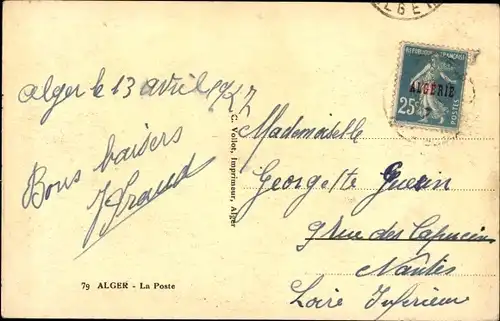 ALGER
REPUBLIQUE FRANÇAISE
ALGÉRIE
25c
POSTES
Alger le 13 avril 1927
Bons baisers
Mademoiselle
Georgette Guérin
9 rue des Capucins
Nantes
Loire Inférieure
C. Vollot, Imprimeur, Alger
79 ALGER - La Poste